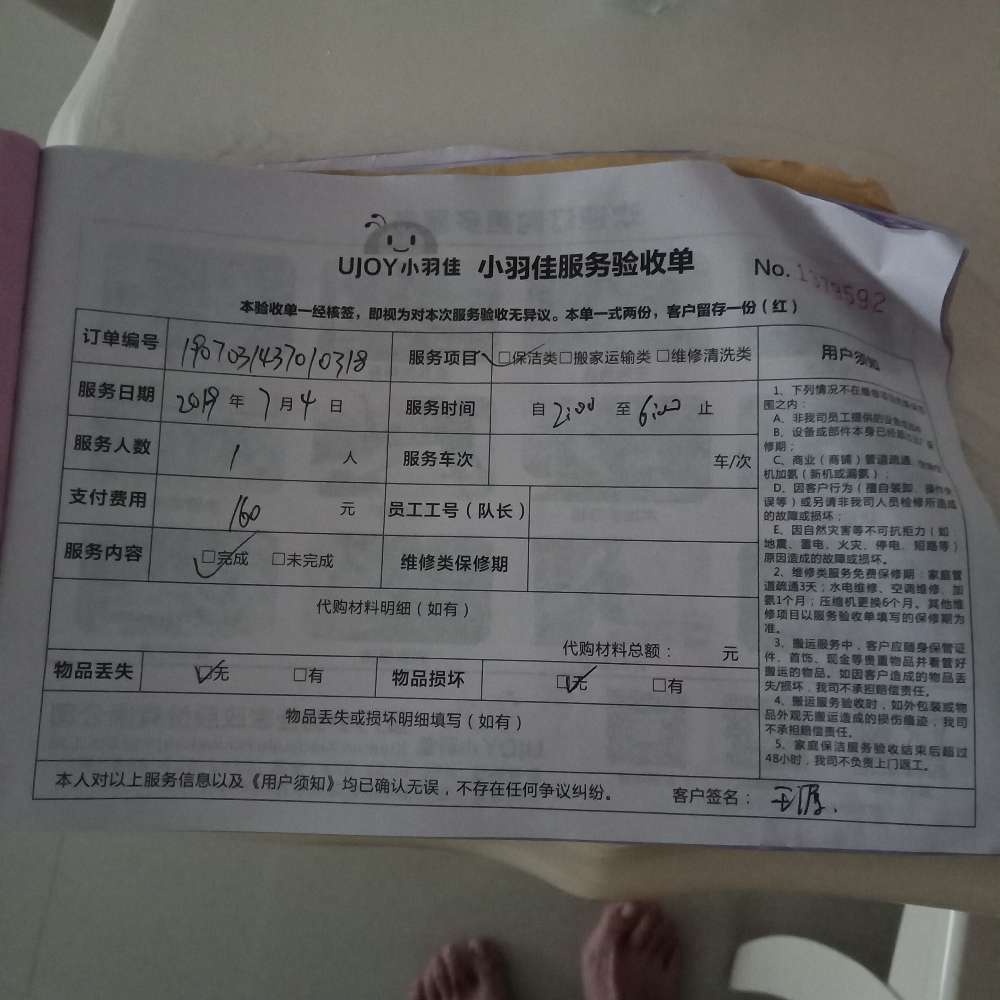 UJOY小羽佳 小羽佳服务验收单 No. 1379592
本验收单一经核签，即视为对本次服务验收无异议。本单一式两份，客户留存一份（红）
订单编号 1907031437010318 服务项目 ☑保洁类□搬家运输类□维修清洗类
服务日期 2019 年 7 月 4 日 服务时间 自 2:00 至 6:00 止
服务人数 1 人 服务车次 车/次
支付费用 160 元 员工工号（队长）
服务内容 ☑完成 □未完成 维修类保修期
代购材料明细（如有）
代购材料总额： 元
物品丢失 ☑无 □有 物品损坏 ☑无 □有
物品丢失或损坏明细填写（如有）
本人对以上服务信息以及《用户须知》均已确认无误，不存在任何争议纠纷。 客户签名：
用户须知
1、下列情况不在维修
围之内：
A、非我司员工提供的设备
B、设备或部件本身已经
修期；
C、商业（商铺）管道疏通、
机加氨（新机或漏氨）；
D、因客户行为（擅自装卸、操作
误等）或另请非我司人员检修所造成
的故障或损坏；
E、因自然灾害等不可抗拒力（如
地震、蓄电、火灾、停电、短路等）
原因造成的故障或损坏。
2、维修类服务免费保修期：家庭管
道疏通3天；水电维修、空调维修、加
氨1个月；压缩机更换6个月。其他维
修项目以服务验收单填写的保修期为
准。
3、搬运服务中，客户应随身保管证
件、首饰、现金等贵重物品并看管好
搬运的物品。如因客户造成的物品丢
失/损坏，我司不承担赔偿责任。
4、搬运服务验收时，如外包装或物
品外观无搬运造成的损伤痕迹，我司
不承担赔偿责任。
5、家庭保洁服务验收结束后超过
48小时，我司不负责上门返工。